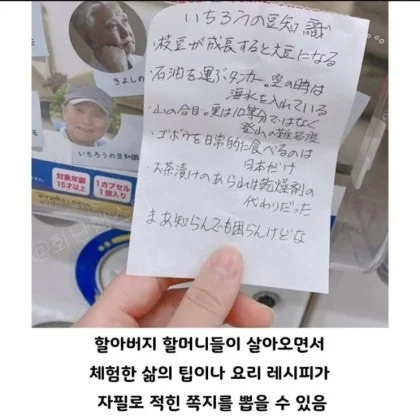 いちろうの豆知識
・枝豆が成長すると大豆になる
・石油を運ぶタンカー。空の時は
海水を入れている
・山の合目。実は10等分ではなく
登山の難易度
・ゴボウを日常的に食べるのは
日本だけ
・お茶漬けのあられは乾燥剤の
代わりだった
まあ知らんでも困らんけどな
きよしの
いちろうの豆知識
対象年齢
15才以上
1カプセル
1個入り
할아버지 할머니들이 살아오면서
체험한 삶의 팁이나 요리 레시피가
자필로 적힌 쪽지를 뽑을 수 있음